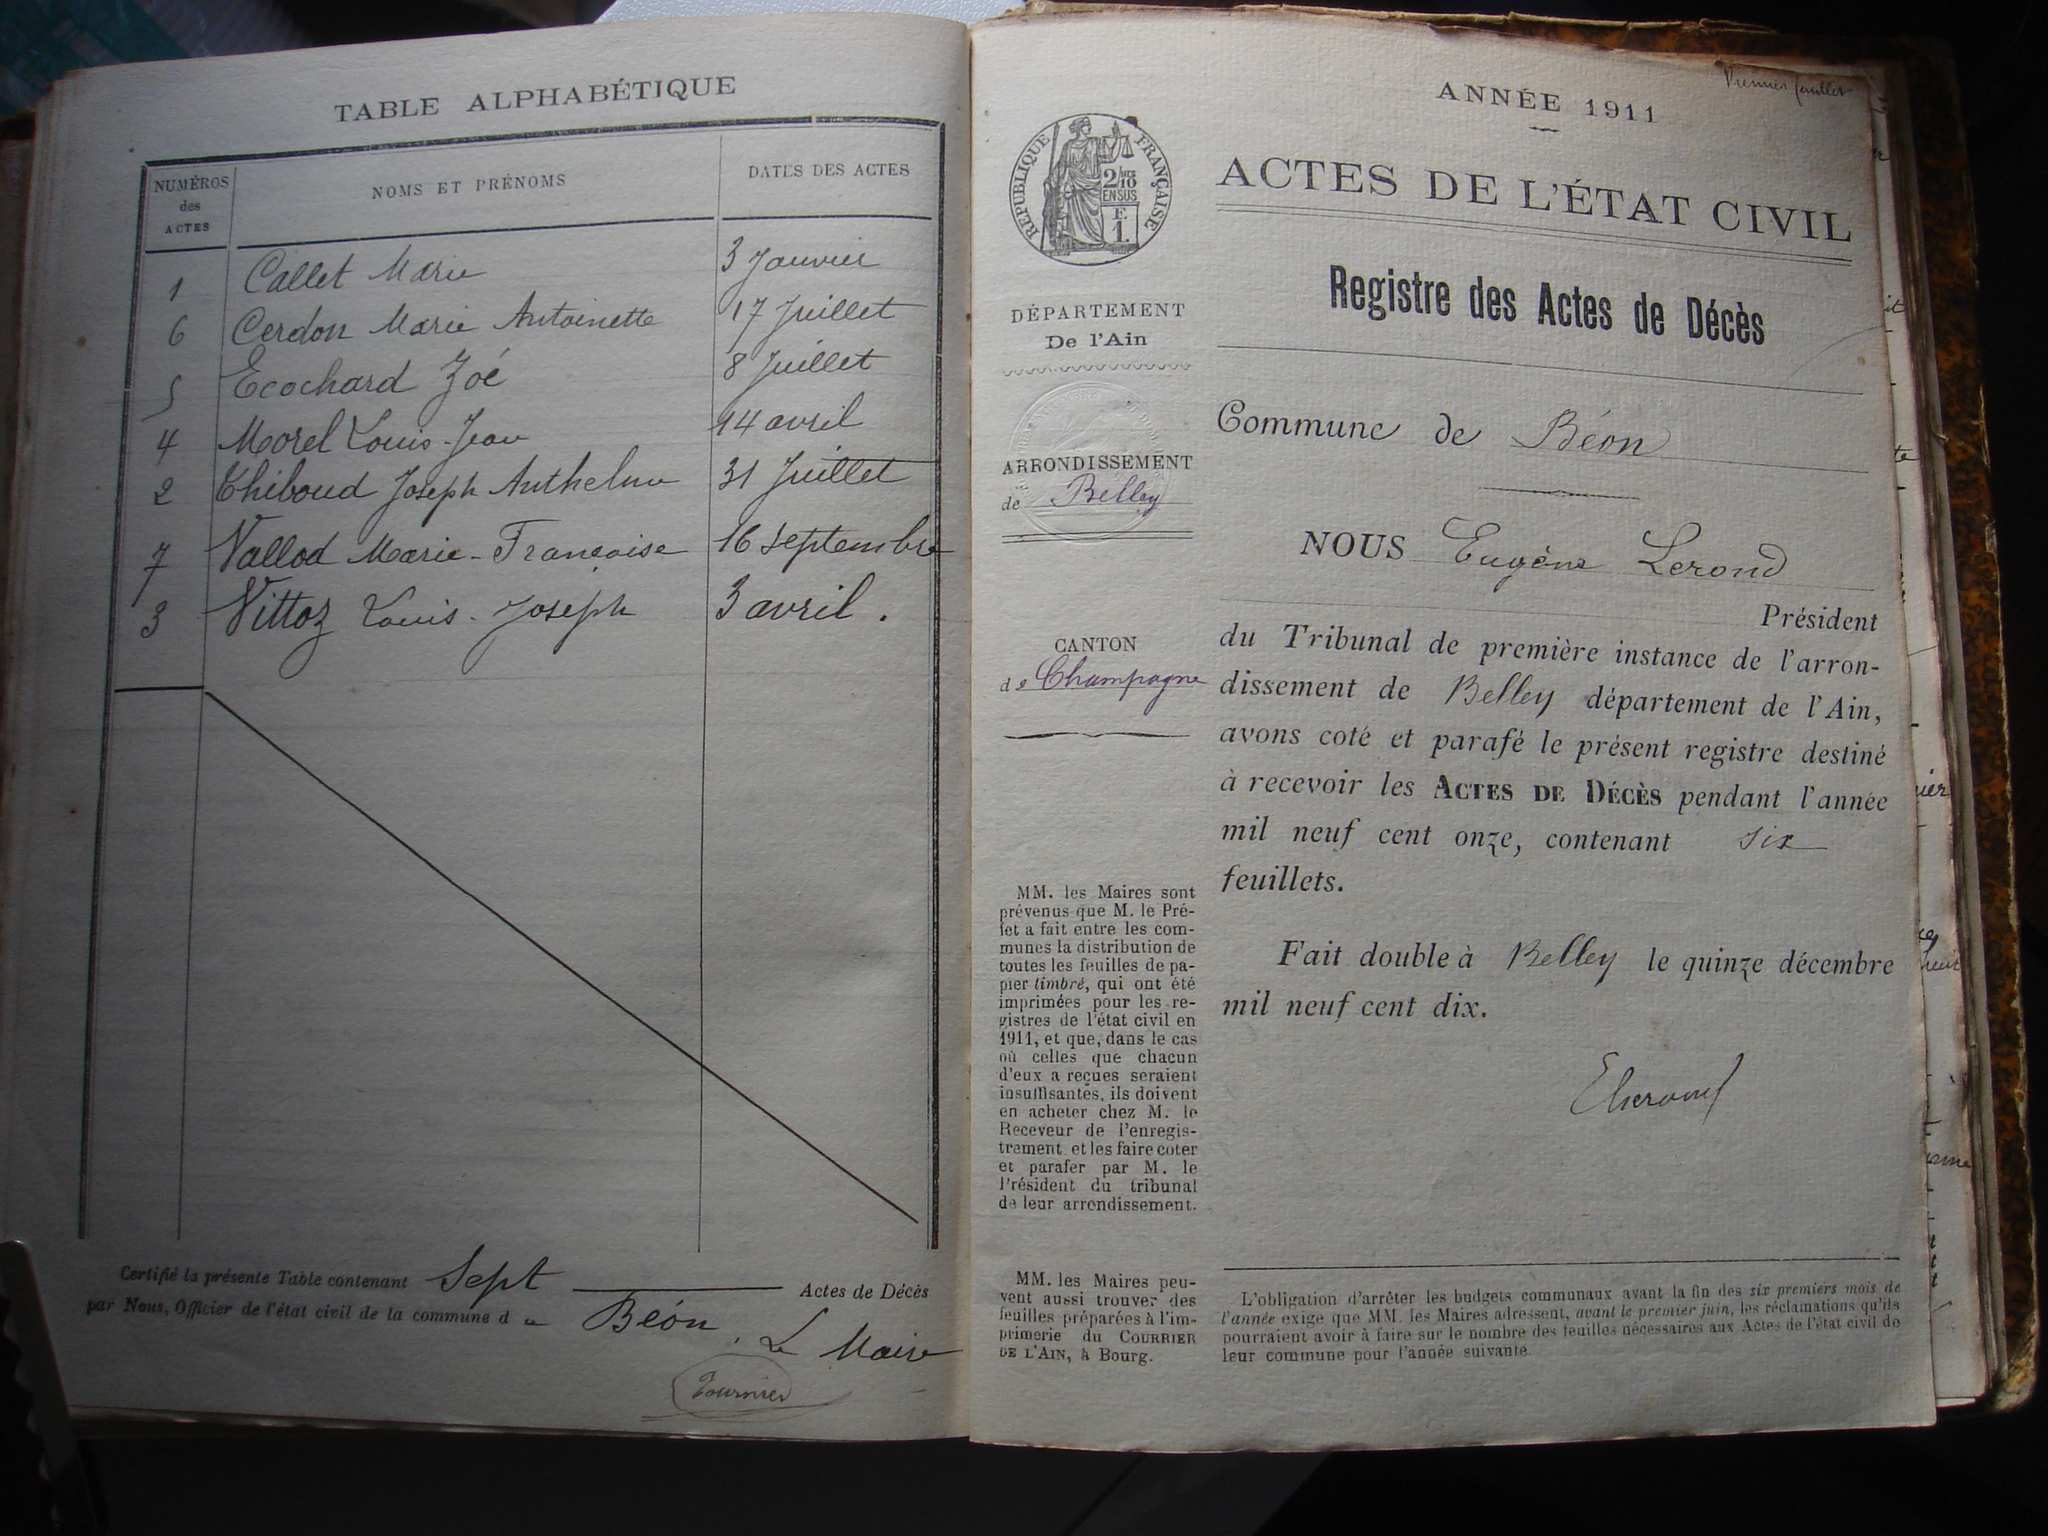 TABLE ALPHABÉTIQUE
NUMÉROS des ACTES
NOMS ET PRÉNOMS
DATES DES ACTES
1 Callet Marie 3 Janvier
6 Cerdon Marie Antoinette 17 Juillet
5 Ecochard Zoé 8 Juillet
4 Morel Louis-Jean 14 avril
2 Thiboud Joseph Anthelme 31 Juillet
7 Vallod Marie-Françoise 16 septembre
3 Vittoz Louis-Joseph 3 avril.
Certifié la présente Table contenant Sept Actes de Décès
par Nous, Officier de l'état civil de la commune d e Béon.
Le Maire
Tournier
Premier feuillet
ANNÉE 1911
RÉPUBLIQUE FRANÇAISE
2/10
EN SUS
F.
1.
ACTES DE L'ÉTAT CIVIL
Registre des Actes de Décès
DÉPARTEMENT
De l'Ain
ARRONDISSEMENT
de Belley
CANTON
de Champagne
Commune de Béon
NOUS Eugène Lerond
Président
du Tribunal de première instance de l'arron-
dissement de Belley département de l'Ain,
avons coté et parafé le présent registre destiné
à recevoir les ACTES DE DÉCÈS pendant l'année
mil neuf cent onze, contenant six
feuillets.
Fait double à Belley le quinze décembre
mil neuf cent dix.
MM. les Maires sont
prévenus que M. le Pré-
fet a fait entre les com-
munes la distribution de
toutes les feuilles de pa-
pier timbré, qui ont été
imprimées pour les re-
gistres de l'état civil en
1911, et que, dans le cas
où celles que chacun
d'eux a reçues seraient
insuffisantes, ils doivent
en acheter chez M. le
Receveur de l'enregis-
trement et les faire coter
et parafer par M. le
Président du tribunal
de leur arrondissement.
MM. les Maires peu-
vent aussi trouver des
feuilles préparées à l'im-
primerie du COURRIER
DE L'AIN, à Bourg.
L'obligation d'arrêter les budgets communaux avant la fin des six premiers mois de
l'année exige que MM. les Maires adressent, avant le premier juin, les réclamations qu'ils
pourraient avoir à faire sur le nombre des feuilles nécessaires aux Actes de l'état civil de
leur commune pour l'année suivante